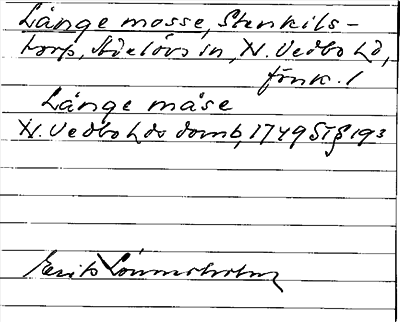 Långe mosse, Stenkils-
torp, Adelövs sn, N. Vedbo hd,
fsnk. 1
Långe måse
N. Vedbo hds domb, 1749 ST § 193
Erik Lönnsholm